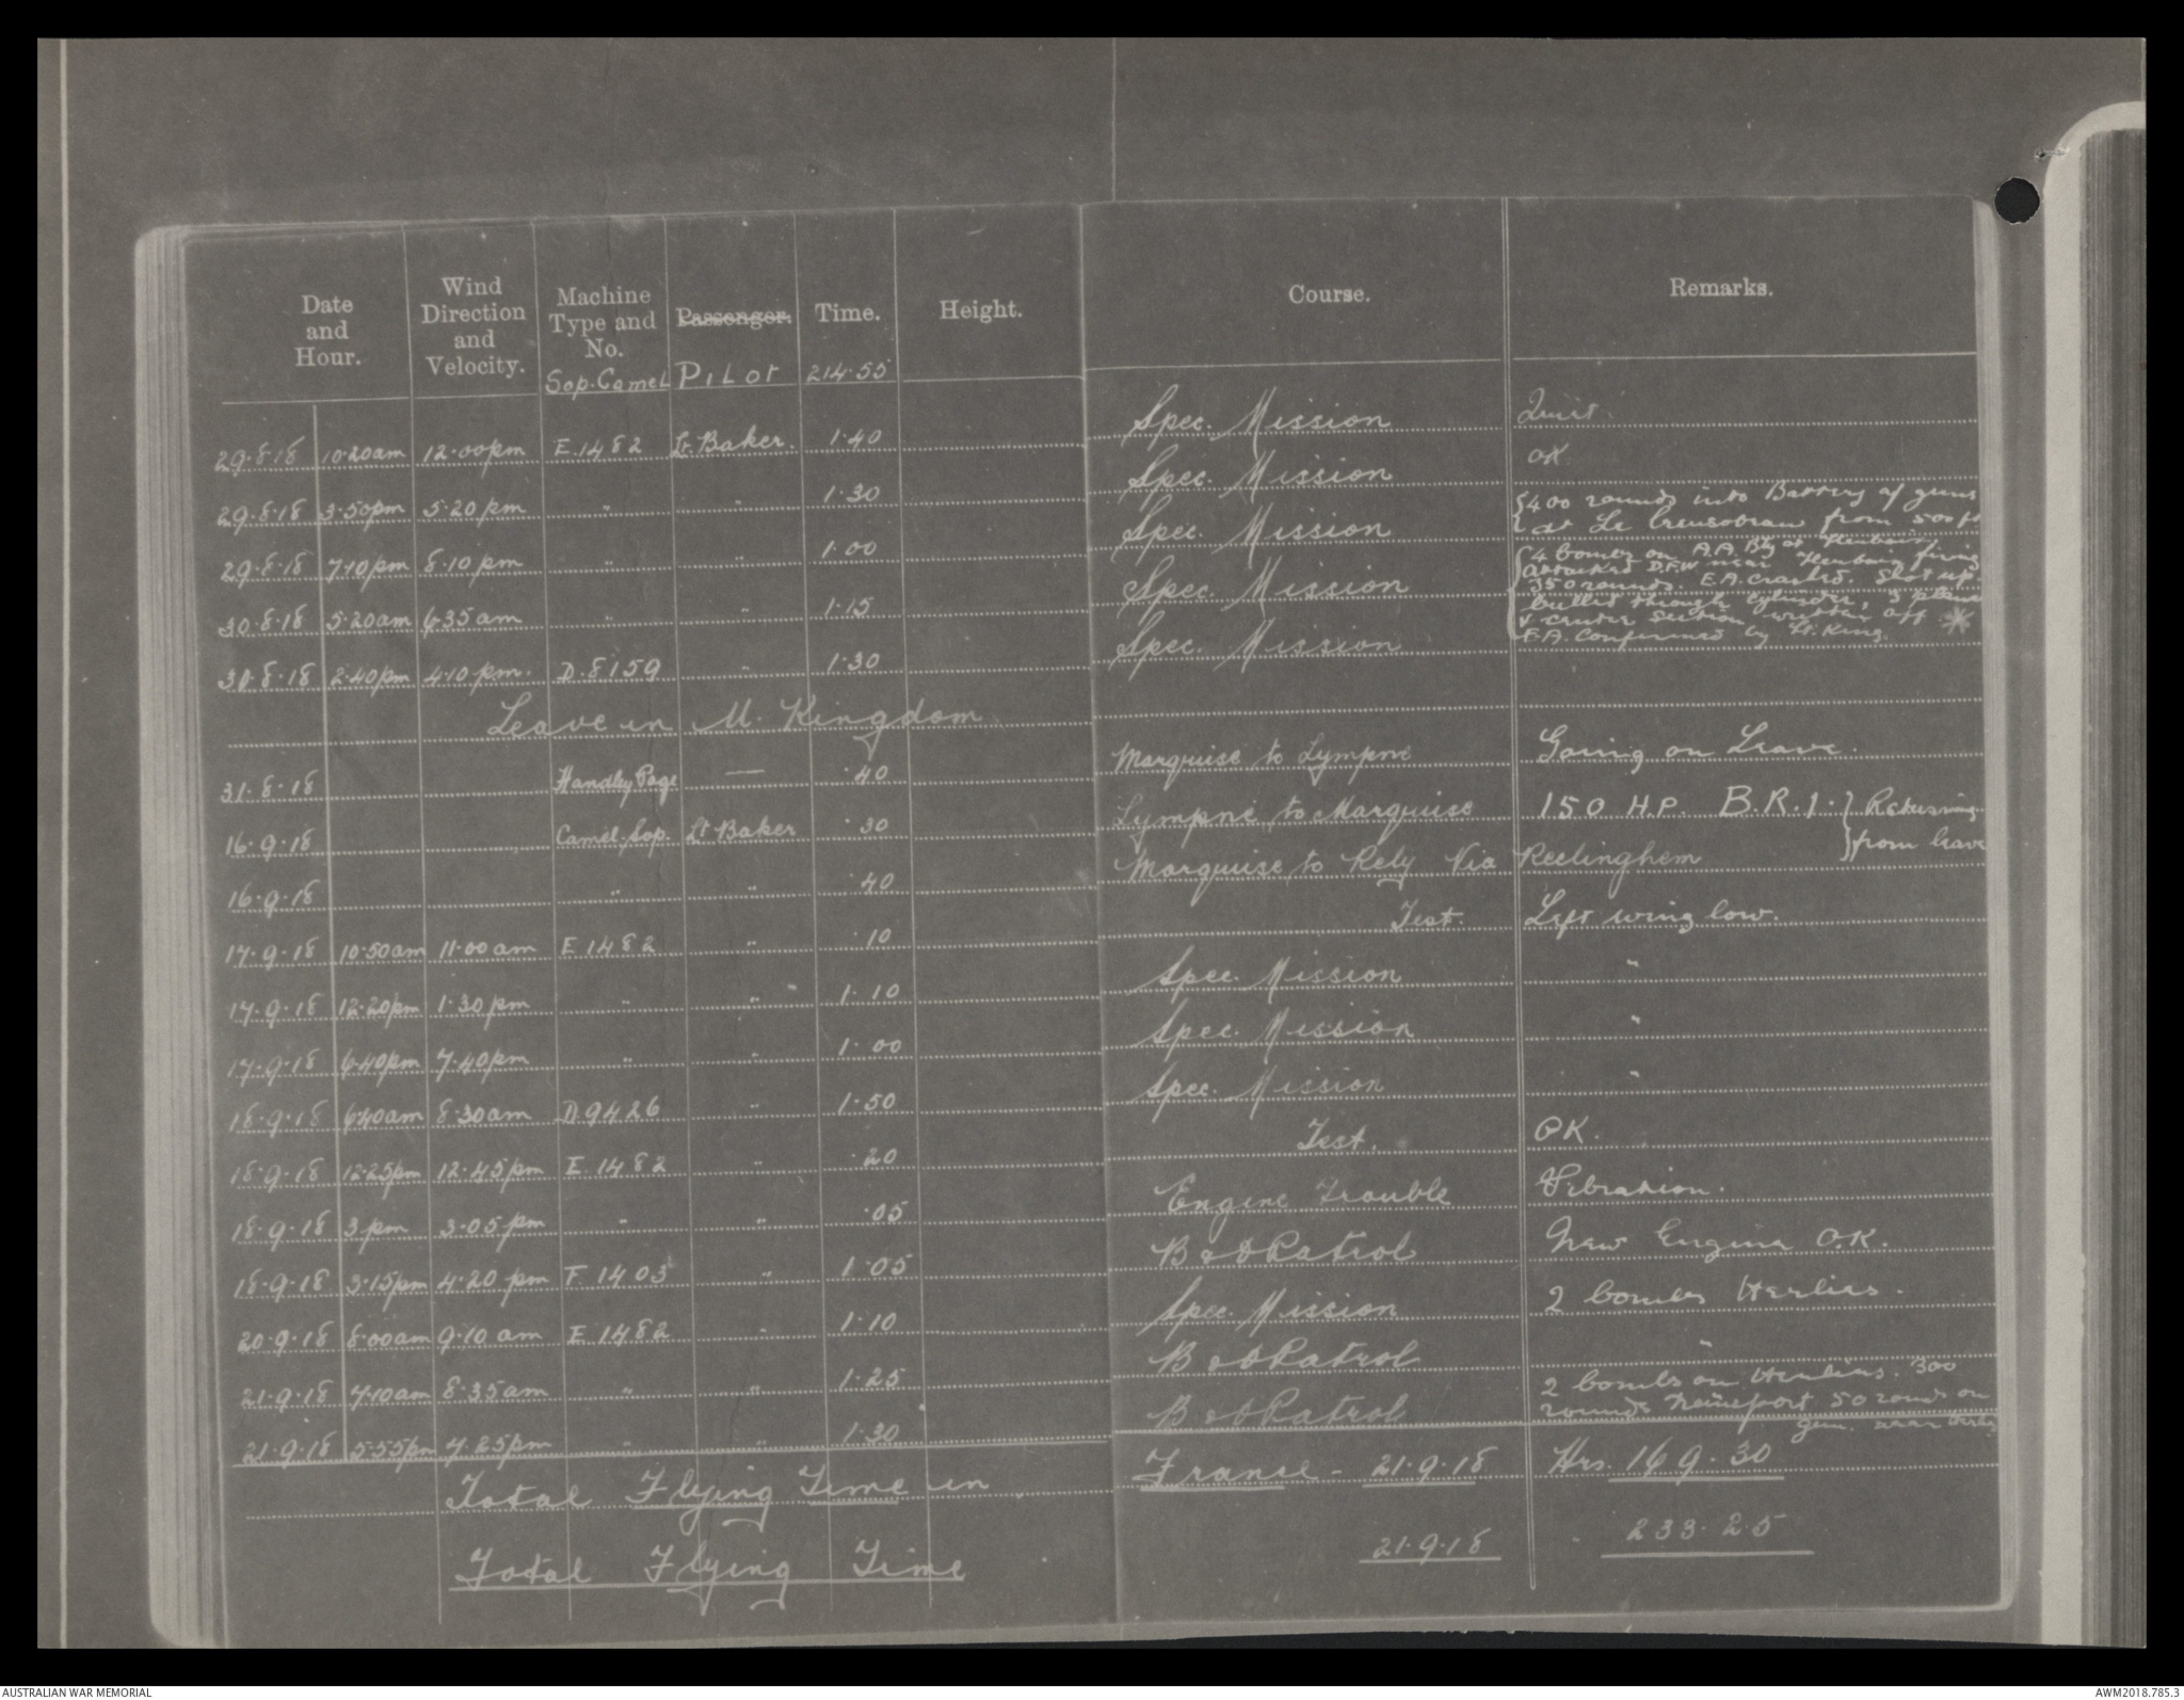 Date and Hour. Wind Direction and Velocity. Machine Type and No. Passenger. Time. Height. Course. Remarks.
Sop. Camel PILOT 214.55
29.8.18 10.20am 12.00pm E.1482 Lt. Baker. 1.40 Spec. Mission Quiet.
29.8.18 3.50pm 5.20pm " " 1.30 Spec. Mission OK
29.8.18 7.10pm 8.10pm " " 1.00 Spec. Mission {400 rounds into Battery of guns
at Le from 500 ft
30.8.18 5.20am 6.35am " " 1.15 Spec. Mission {4 bombs on A.A. Bty at
attacked D.F.W near firing
350 rounds. E.A. crashed. Shot up.
bullet through cylinder, 3
& center section off *
E.A. Confirmed by Lt. King.
30.8.18 2.40pm 4.10pm. D.8159 " 1.30 Spec. Mission
Leave in U. Kingdom
31.8.18 Handley Page — .40 Marquise to Lympne Going on Leave.
16.9.18 Camel. Sop. Lt Baker .30 Lympne to Marquise 150 H.P. B.R.1. } Returning
16.9.18 " " .40 Marquise to Rely Via Reclinghem } from leave
17.9.18 10.50am 11.00am E.1482 " .10 Test. Left wing low.
17.9.18 12.20pm 1.30pm " " 1.10 Spec. Mission "
17.9.18 6.40pm 7.40pm " " 1.00 Spec. Mission "
18.9.18 6.40am 8.30am D.9426 " 1.50 Spec. Mission "
18.9.18 12.25pm 12.45pm E.1482 " .20 Test. OK.
18.9.18 3pm 3.05pm " " .05 Engine Trouble Vibration.
18.9.18 3.15pm 4.20pm F.1403 " 1.05 B & O Patrol New Engine O.K.
20.9.18 8.00am 9.10am E.1482 " 1.10 Spec. Mission 2 bombs Herlies.
21.9.18 7.10am 8.35am " " 1.25 B & O Patrol "
21.9.18 5.55pm 7.25pm " " 1.30 B & O Patrol 2 bombs on Herlies. 300
rounds 50 rounds on
near
Total Flying Time in France - 21.9.18 Hrs. 169.30
Total Flying Time 21.9.18 233.25
AUSTRALIAN WAR MEMORIAL AWM2018.785.3